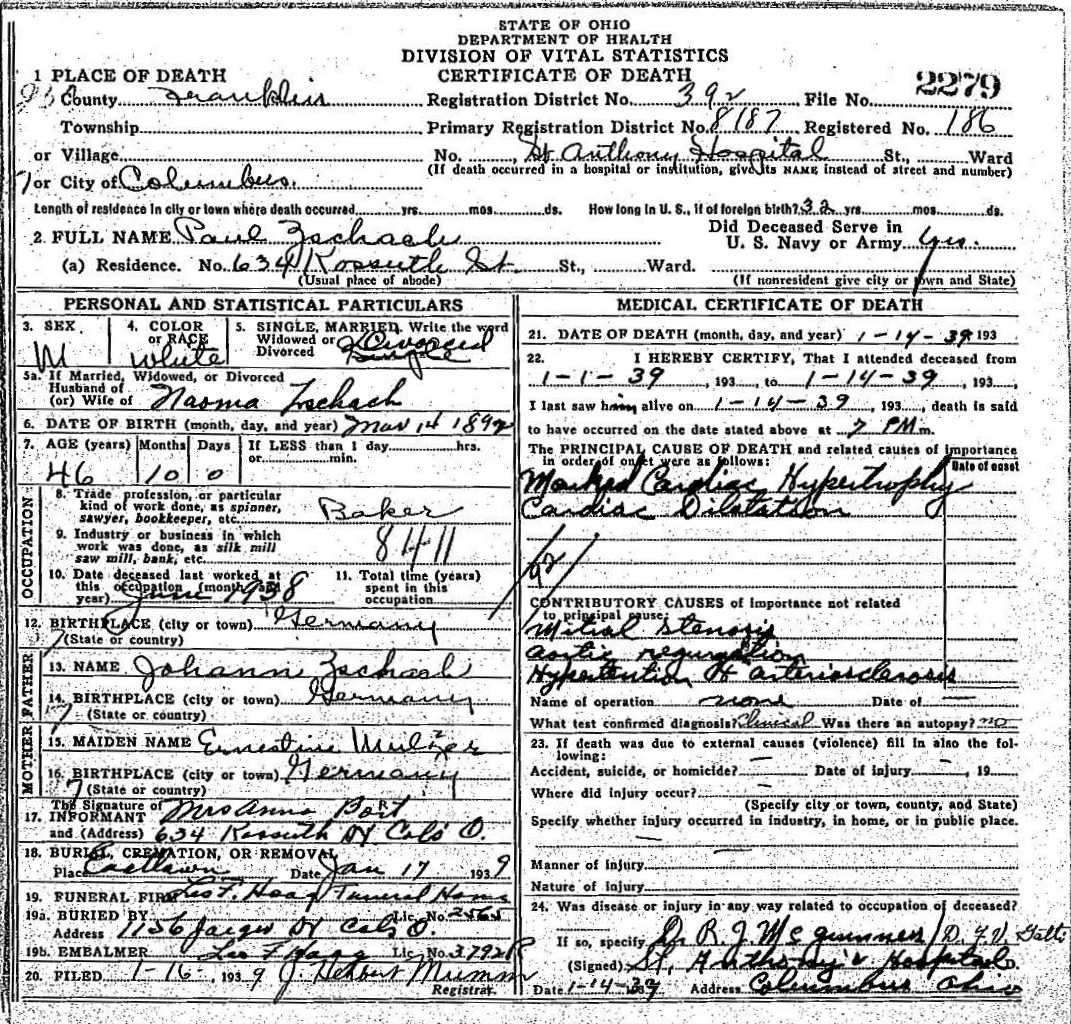 STATE OF OHIO
DEPARTMENT OF HEALTH
DIVISION OF VITAL STATISTICS
CERTIFICATE OF DEATH
2279
1 PLACE OF DEATH
County Franklin Registration District No. 392 File No.
Township Primary Registration District No. 8187 Registered No. 186
or Village No. St Anthony Hospital St., Ward
(If death occurred in a hospital or institution, give its NAME instead of street and number)
or City of Columbus.
Length of residence in city or town where death occurred yrs. mos. ds. How long in U. S., if of foreign birth? 32 yrs. mos. ds.
2. FULL NAME Paul Zschach Did Deceased Serve in U. S. Navy or Army Yes.
(a) Residence. No. 634 Kossuth St. St., Ward.
(Usual place of abode) (If nonresident give city or town and State)
PERSONAL AND STATISTICAL PARTICULARS
3. SEX M
4. COLOR or RACE White
5. SINGLE, MARRIED, Write the word Widowed or Divorced Divorced
5a. If Married, Widowed, or Divorced
Husband of
(or) Wife of Naoma Zschach
6. DATE OF BIRTH (month, day, and year) Mar 14 1892
7. AGE (years) Months Days If LESS than 1 day hrs.
or min.
46 10 0
OCCUPATION
8. Trade profession, or particular
kind of work done, as spinner,
sawyer, bookkeeper, etc. Baker
9. Industry or business in which
work was done, as silk mill
saw mill, bank, etc. 8411
10. Date deceased last worked at
this occupation (month and
year) June 1938
11. Total time (years)
spent in this
occupation
12. BIRTHPLACE (city or town) Germany
(State or country)
FATHER
13. NAME Johann Zschach
14. BIRTHPLACE (city or town) Germany
(State or country)
MOTHER
15. MAIDEN NAME Ernestine
16. BIRTHPLACE (city or town) Germany
(State or country)
The Signature of
17. INFORMANT Mrs Anna Bort
and (Address) 634 Kossuth St Cols O.
18. BURIAL, CREMATION, OR REMOVAL
Place Eastlawn Date Jan 17 1939
19. FUNERAL FIRM Leo F. Haag Funeral Home
19a. BURIED BY Lic. No.
Address 1156 Jaeger St Cols O.
19b. EMBALMER Leo F Haag Lic. No. 3792
20. FILED 1-16- 1939 J. Herbert Mumm
Registrar.
MEDICAL CERTIFICATE OF DEATH
21. DATE OF DEATH (month, day, and year) 1-14-39 193
22. I HEREBY CERTIFY, That I attended deceased from
1-1-39, 193, to 1-14-39, 193,
I last saw him alive on 1-14-39, 193, death is said
to have occurred on the date stated above at 7 PM m.
The PRINCIPAL CAUSE OF DEATH and related causes of importance
in order of onset were as follows: Date of onset
Marked Cardiac Hypertrophy
Cardiac Dilatation
CONTRIBUTORY CAUSES of importance not related
to principal cause:
Mitral stenosis
Aortic regurgation
Hypertention & arteriosclerosis
Name of operation none Date of
What test confirmed diagnosis? Clinical Was there an autopsy? no
23. If death was due to external causes (violence) fill in also the following:
Accident, suicide, or homicide? Date of injury , 19
Where did injury occur?
(Specify city or town, county, and State)
Specify whether injury occurred in industry, in home, or in public place.
Manner of injury
Nature of injury
24. Was disease or injury in any way related to occupation of deceased?
If so, specify Dr R. J. McGinness
(Signed) St. Anthony's Hospital
Date 1-14-39 Address Columbus Ohio